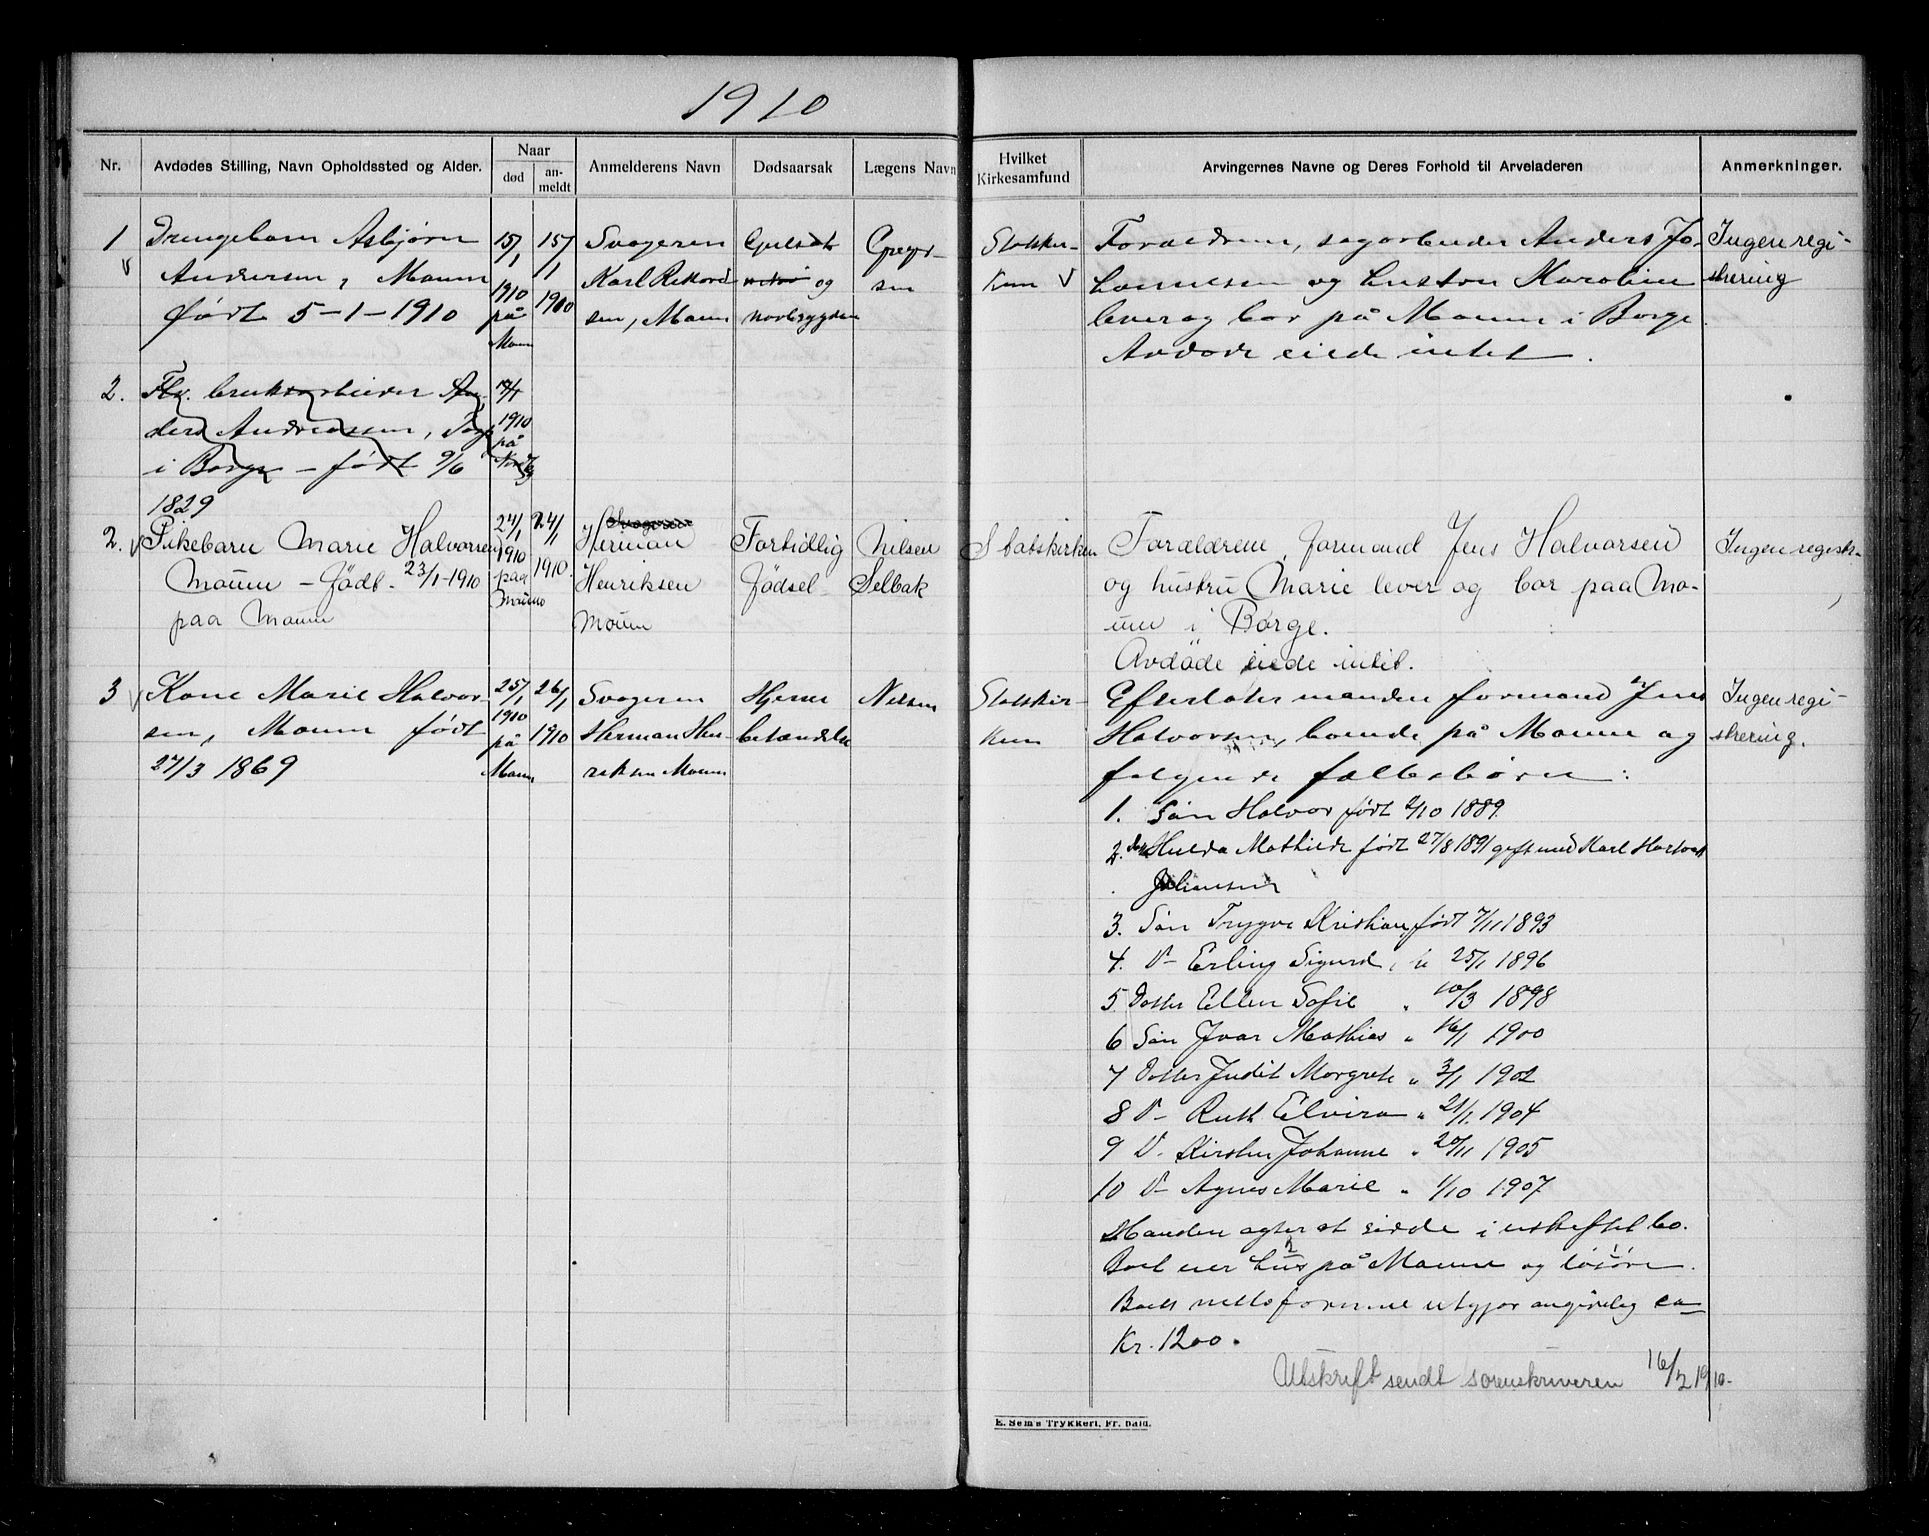 1910
Nr.
Avdødes Stilling, Navn Opholdssted og Alder.
Naar
død
an-
meldt
Anmelderens Navn
Dødsaarsak
Lægens Navn
Hvilket
Kirkesamfund
Arvingernes Navne og Deres Forhold til Arveladeren
Anmerkninger.
1
Drengebarn Asbjørn
Andersen, Moum
født 5-1-1910
15/
1
1910
på
Moum
15/
1
1910
Svogeren
Karl Rikard
sen, Moum
og
navleblødning
Statskir-
ken
Forældrene, sagarbeider Anders Jo-
hannesen og hustru Karoline
lever og bor på Moum i Borge.
Avdøde eiede intet.
Ingen regi-
strering
2.
Fhv. bruksarbeider An-
ders Andreassen,
i Borge - født 9/6
1829
1910
på
2.
Pikebarn Marie Halvorsen
Moum - født 23/1-1910
paa Moum
24/1
1910
paa
Moum
24/1
1910.
Svogeren
Herman
Henriksen
Moum
Fortidlig
fødsel
Nilsen
Selbak
Statskirken
Forældrene, formand Jens Halvorsen
og hustru Marie lever og bor paa Mo-
um i Borge.
Avdøde eiede intet.
Ingen registr.
3
Kone Marie Halvor-
sen, Moum født
27/3 1869
25/1
1910
på
Moum
26/1
1910
Svogeren
Herman Hen-
riksen Moum
Hjerne
betændelse
Nilsen
Statskir-
ken
Efterlater manden formand Jens
Halvorsen, boende på Moum og
følgende fællesbørn:
1. Søn Halvor født 2/10 1889.
2. Hulda Mathilde født 27/8 1891 gift med Karl Hartvik
Johansen
3. Søn Trygve Kristian, født 7/11 1893
4. D- Erling Sigurd, " 25/1 1896
5 Datter Ellen Sofie " 10/3 1898
6 Søn Ivar Mathias " 16/1 1900
7 Datter Judit Margrete " 3/1 1902
8 D- Ruth Elvira " 21/1 1904
9 D. Kirsten Johanne " 20/11 1905
10 D- Agnes Marie " 1/10 1907
Manden agter at sidde i uskiftet bo.
Boet eier hus på Moum og løsøre.
Boets nettoformue utgjør angivelig ca
Kr. 1200.
Utskrift sendt sorenskriveren 16/2 1910-
Ingen regi-
strering.
E. Sem's Trykkeri, Fr. hald.